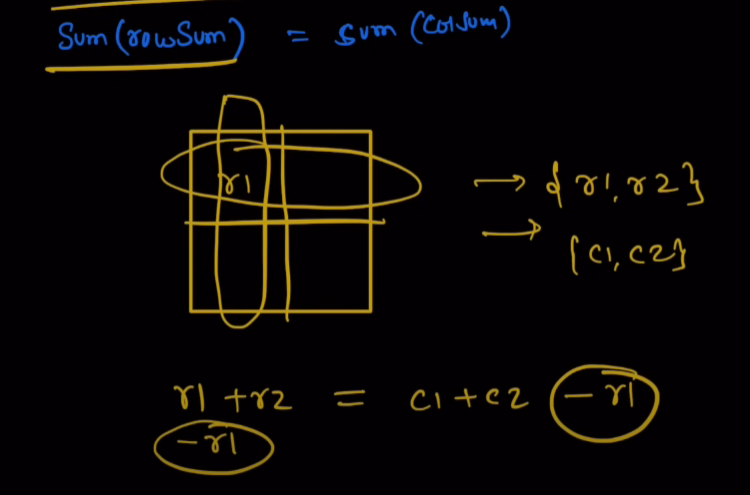 Sum(rowSum) = sum(colsum)
r1
→ {r1, r2}
→ {c1, c2}
r1 + r2 = c1 + c2 - r1
- r1